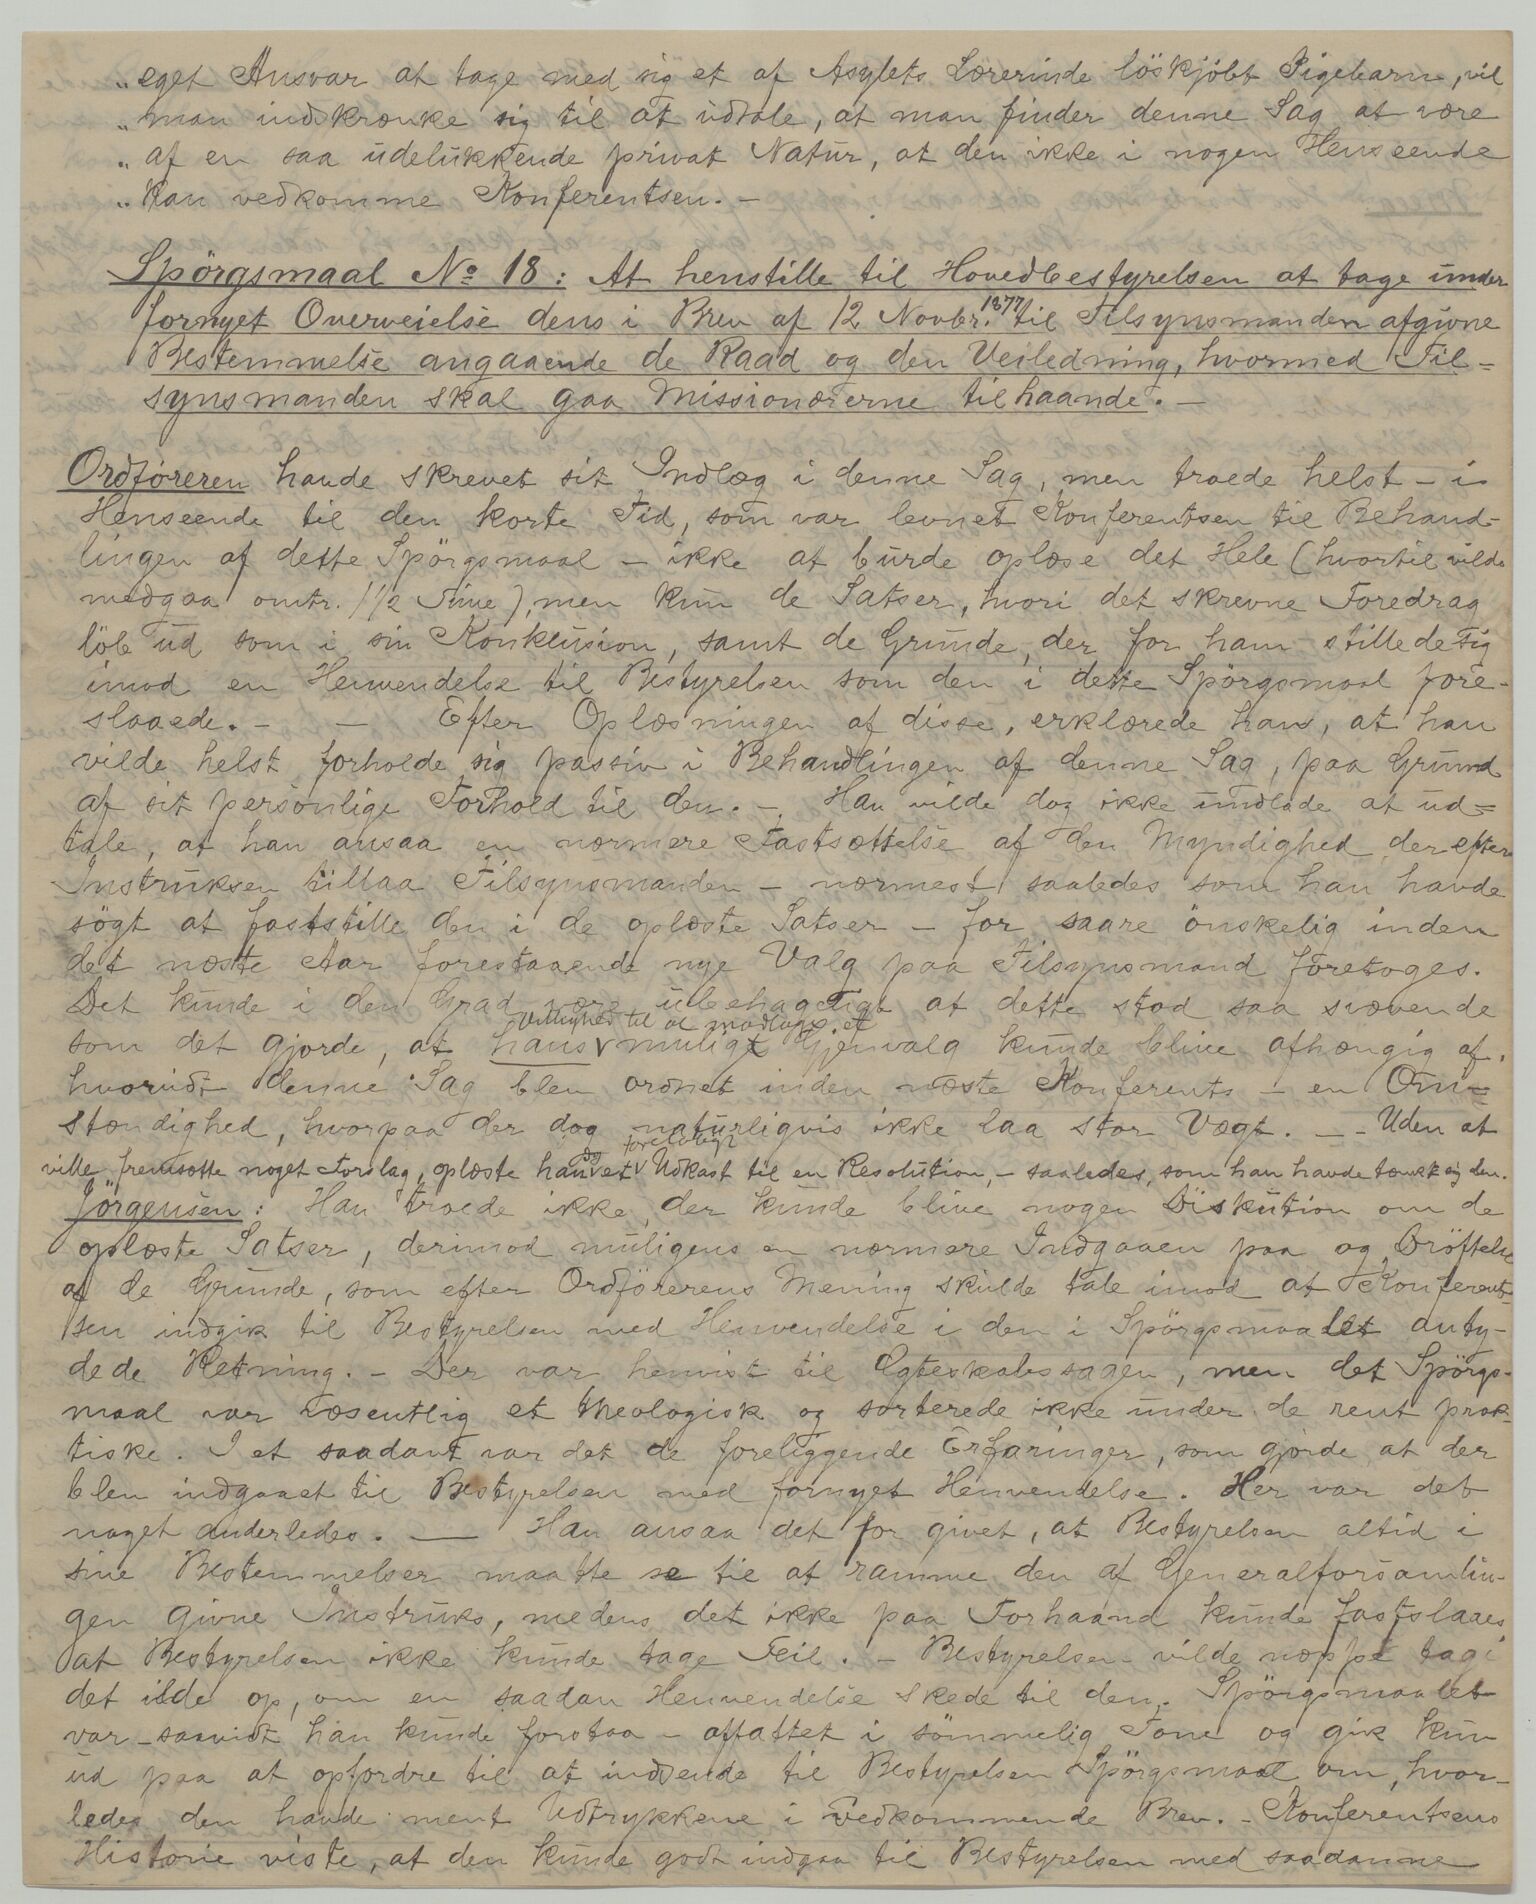 „ eget Ansvar at tage med sig et af Asylets Lærerinde löskjöbt Pigebarn, vil
„ man indskrænke sig til at udtale, at man finder denne Sag at være
„ af en saa udelukkende privat Natur, at den ikke i nogen Henseende
„ kan vedkomme Konferentsen. –
Spörgsmaal No 18: At henstille til Hovedbestyrelsen at tage under
fornyet Overveielse dens i Brev af 12 Novbr. 1877 til Tilsynsmanden afgivne
Bestemmelse angaaende de Raad og den Veiledning, hvormed Til=
synsmanden skal gaa Missionærerne tilhaande. –
Ordföreren havde skrevet sit Indlæg i denne Sag, men troede helst – i
Henseende til den korte Tid, som var levnet Konferentsen til Behand-
lingen af dette Spörgsmaal – ikke at burde oplæse det Hele (hvortil vilde
medgaa omtr. 1 1/2 Time), men kun de Satser, hvori det skrevne Foredrag
löb ud som i sin Konklusion, samt de Grunde, der for ham stillede sig
imod en Henvendelse til Bestyrelsen som den i dette Spörgsmaal fore-
slaaede. – – Efter Oplæsningen af disse, erklærede han, at han
vilde helst forholde sig passiv i Behandlingen af denne Sag, paa Grund
af sit personlige Forhold til den. – Han vilde dog ikke undlade at ud=
tale, at han ansaa en nærmere Fastsættelse af den Myndighed, der efter
Instruksen tillaa Tilsynsmanden – nærmest saaledes som han havde
sögt at faststille den i de oplæste Satser – for saare önskelig inden
det næste Aar forestaaende nye Valg paa Tilsynsmand foretoges.
Det kunde i den Grad være ubehageligt at dette stod saa svævende
som det gjorde, at hans Villighed til at modtage et muligt Gjenvalg kunde blive afhængig af,
hvorvidt denne Sag blev ordnet inden næste Konferents – en Om=
stændighed, hvorpaa der dog naturligvis ikke laa stor Vægt. – – Uden at
ville fremsætte noget Forslag, oplæste han dog et foreløbigt Udkast til en Resolution, – saaledes, som han havde tænkt sig den.
Jörgensen: Han troede ikke, der kunde blive nogen Diskution om de
oplæste Satser, derimod muligens en nærmere Indgaaen paa og Dröftelse
af de Grunde, som efter Ordförerens Mening skulde tale imod at Konferents-
sen indgik til Bestyrelsen med Henvendelse i den i Spörgsmaalet anty-
dede Retning. – Der var henvist til Ægteskabssagen, men det Spörgs-
maal var væsentlig et theologisk og sorterede ikke under de rent prak-
tiske. I et saadant var det de foreliggende Erfaringer, som gjorde at der
blev indgaaet til Bestyrelsen med fornyet Henvendelse. Her var det
noget anderledes. — Han ansaa det for givet, at Bestyrelsen altid i
sine Bestemmelser maatte se til at ramme den af Generalforsamlin-
gen givne Instruks, medens det ikke paa Forhaand kunde fastslaaes
at Bestyrelsen ikke kunde tage Feil. – Bestyrelsen vilde neppe tage
det ilde op, om en saadan Henvendelse skede til den. Spörgsmaalet
var – saavidt han kunde forstaa – affattet i sömmelig Tone og gik kun
ud paa at opfordre til at indsende til Bestyrelsen Spörgsmaal om, hvor-
ledes den havde ment Udtrykkene i vedkommende Brev. – Konferentsens
Historie viste, at den kunde godt indgaa til Bestyrelsen med saadanne